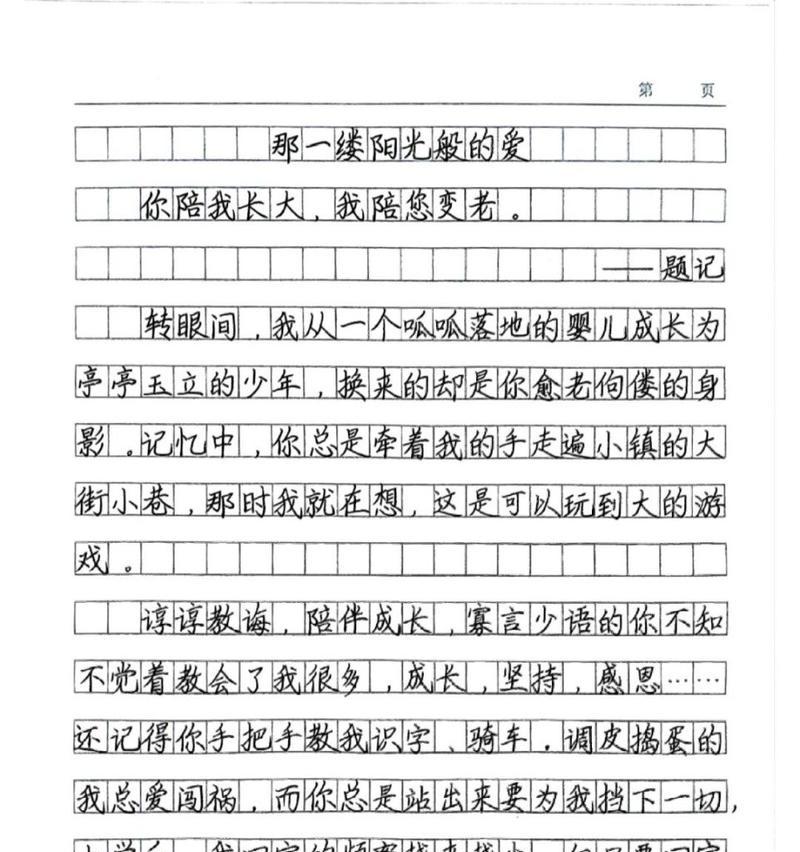 第 页
那一缕阳光般的爱
你陪我长大，我陪您变老。
——题记
转眼间，我从一个呱呱落地的婴儿成长为
亭亭玉立的少年，换来的却是你愈老佝偻的身
影。记忆中，你总是牵着我的手走遍小镇的大
街小巷，那时我就在想，这是可以玩到大的游
戏。
谆谆教诲，陪伴成长，寡言少语的你不知
不觉着教会了我很多，成长，坚持，感恩……
还记得你手把手教我识字、骑车．调皮捣蛋的
我总爱闯祸，而你总是站出来要为我挡下一切，